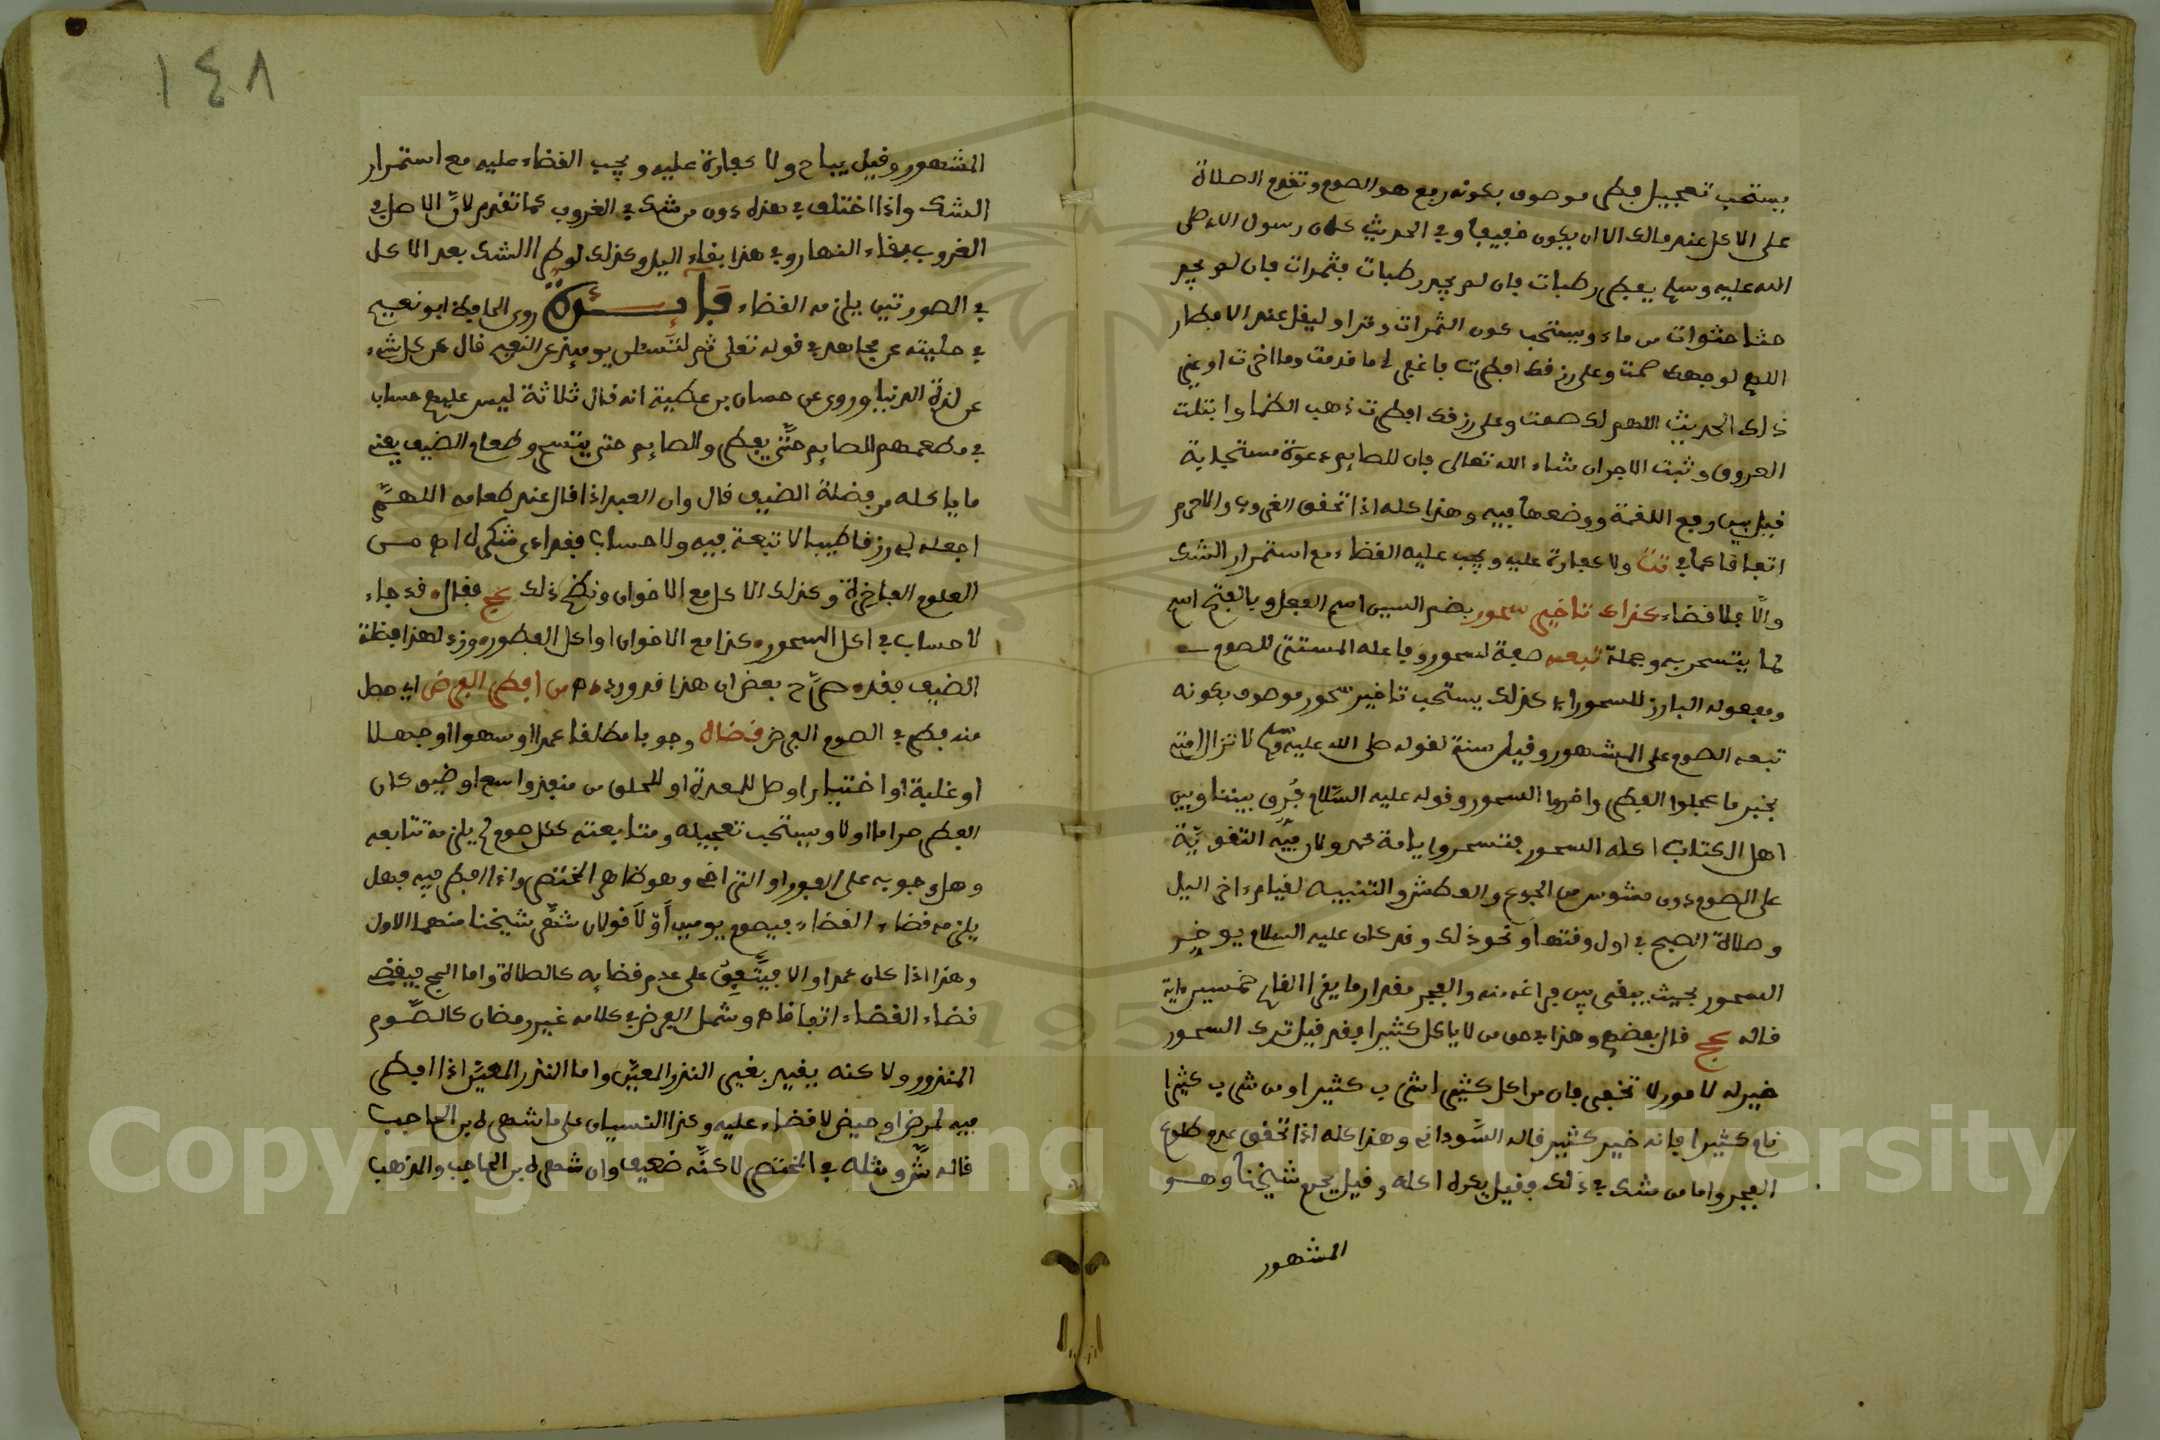 يستحب تعجيل فطر موصوف بكونه رفع هو الصوم وتقدم الصلاة
على الاكل عند مالك الا ان يكون خفيفا وفي الحديث كان رسول الله صلى
الله عليه وسلم يفطر رطبات فان لم يجد رطبات فتمرات فان لم يجد
حثا حثوات من ماء ويستحب كون الثمرات وترا وليقل عند الافطار
اللهم لوجهك صمت وعلى رزقك افطرت فاغفر لي ما قدمت وما اخرت او يعني
ذلك الحديث اللهم لك صمت وعلى رزقك افطرت ذهب الظما وابتلت
العروق وثبت الاجر ان شاء الله تعالى فان للصايم دعوة مستجابة
قيل بين رفع اللقمة ووضعها فيه وهذا كله اذا تحقق الغروب والا حرم
اتفاقا كما في تت ولا كفارة عليه ويجب عليه القضاء مع استمرار الشك
والا فلا قضاء كذاك تاخير سحور بضم السين اسم الفعل وبالفتح اسم
لما يتسحر به وجملة تبعه صفة لسحور وفاعله المستتر للصوم
ومفعوله البارز للسحور اي كذلك يستحب تاخير سحور موصوف بكونه
تبعه الصوم على المشهور وقيل سنة لقوله صلى الله عليه وسلم لا تزال امتي
بخير ما عجلوا الفطر واخروا السحور وقوله عليه السلام فرق بيننا وبين
اهل الكتاب اكلة السحور فتسحروا يا امة محمد ولان فيه التقوية
على الصوم دون مشوش من الجوع والعطش والتنبيه لقيام اخر اليل
وصلاة الصبح في اول وقتها ونحو ذلك وقد كان عليه السلام يوخر
السحور بحيث يبقى بين فراغه منه والفجر مقدار ما يقرا القارئ خمسين اية
قاله عج قال بعضهم وهذا في حق من لا ياكل كثيرا فقد قيل ترك السحور
خير له لامور لا تخفى فان من اكل كثيرا شرب كثيرا ومن شرب كثيرا
نام كثيرا فاته خير كثير قاله السوداني وهذا كله اذا تحقق عدم طلوع
الفجر واما من شك في ذلك فقيل يكره اكله وقيل يحرم شيخنا وهو
المشهور
١٤٨
المشهور وقيل يباح ولا كفارة عليه ويجب القضاء عليه مع استمرار
الشك واذا اختلف في هذه دون من شك في الغروب كما تقدم لان الاصل في
الغروب بقاء النهار وفي هذا بقاء اليل وكذلك لو طرا الشك بعد الاكل
في الصورتين يلزمه القضاء فائدة روى الحافظ ابو نعيم
في حليته عن مجاهد في قوله تعلى ثم لتسئلن يوميذ عن النعيم قال عن كل شيء
عن لذة الدنيا وروي عن حسان بن عطية انه قال ثلاثة ليس عليهم حساب
في مطعمهم الصايم حتى يفطر والصايم حتى يتسحر وطعام الضيف يعني
ما ياكله من فضلة الضيف قال وان العبد اذا قال عند طعامه اللهم
اجعله لي رزقا طيبا لا تبعة فيه ولا حساب فقد ادى شكره اه من
العلوم الفاخرة وكذلك الاكل مع الاخوان ونظم ذلك عج فقال قد جاء
لا حساب في اكل السحور كذا مع الاخوان او اكل الفطور وزد لهذا فضلة
الضيف فقد صرح بعض ان هذا قد ورد اه من افطر الفرض اي حصل
منه فطر في الصوم الفرض قضاه وجوبا مطلقا عمدا او سهوا او جهلا
او غلبة او اختيارا وصل للمعدة او للحلق من منفذ واسع او ضيق كان
الفطر حراما او لا ويستحب تعجيله ومتابعته ككل صوم لم يلزمه تتابعه
وهل وجوبه على الفور او التراخي وهو ظاهر المختصر واذا افطر فيه فهل
يلزمه قضاء القضاء فيصوم يومين اولا قولان شهر شيخنا منهما الاول
وهذا اذا كان عمدا والا فيتفق على عدم قضايه كالصلاة واما الحج فيقضي
قضاء القضاء اتفاقا اه وشمل الفرض في كلامه غير رمضان كالصوم
المنذور ولاكنه يقيد بغير النذر المعين واما النذر المعين اذا افطر
فيه لمرض او حيض لا قضاء عليه وكذا النسيان على ما شهره ابن الحاجب
قاله ش ومثله في المختصر لاكنه ضعيف وان شهره ابن الحاجب والمذهب
Copyright © King Saud University
1957